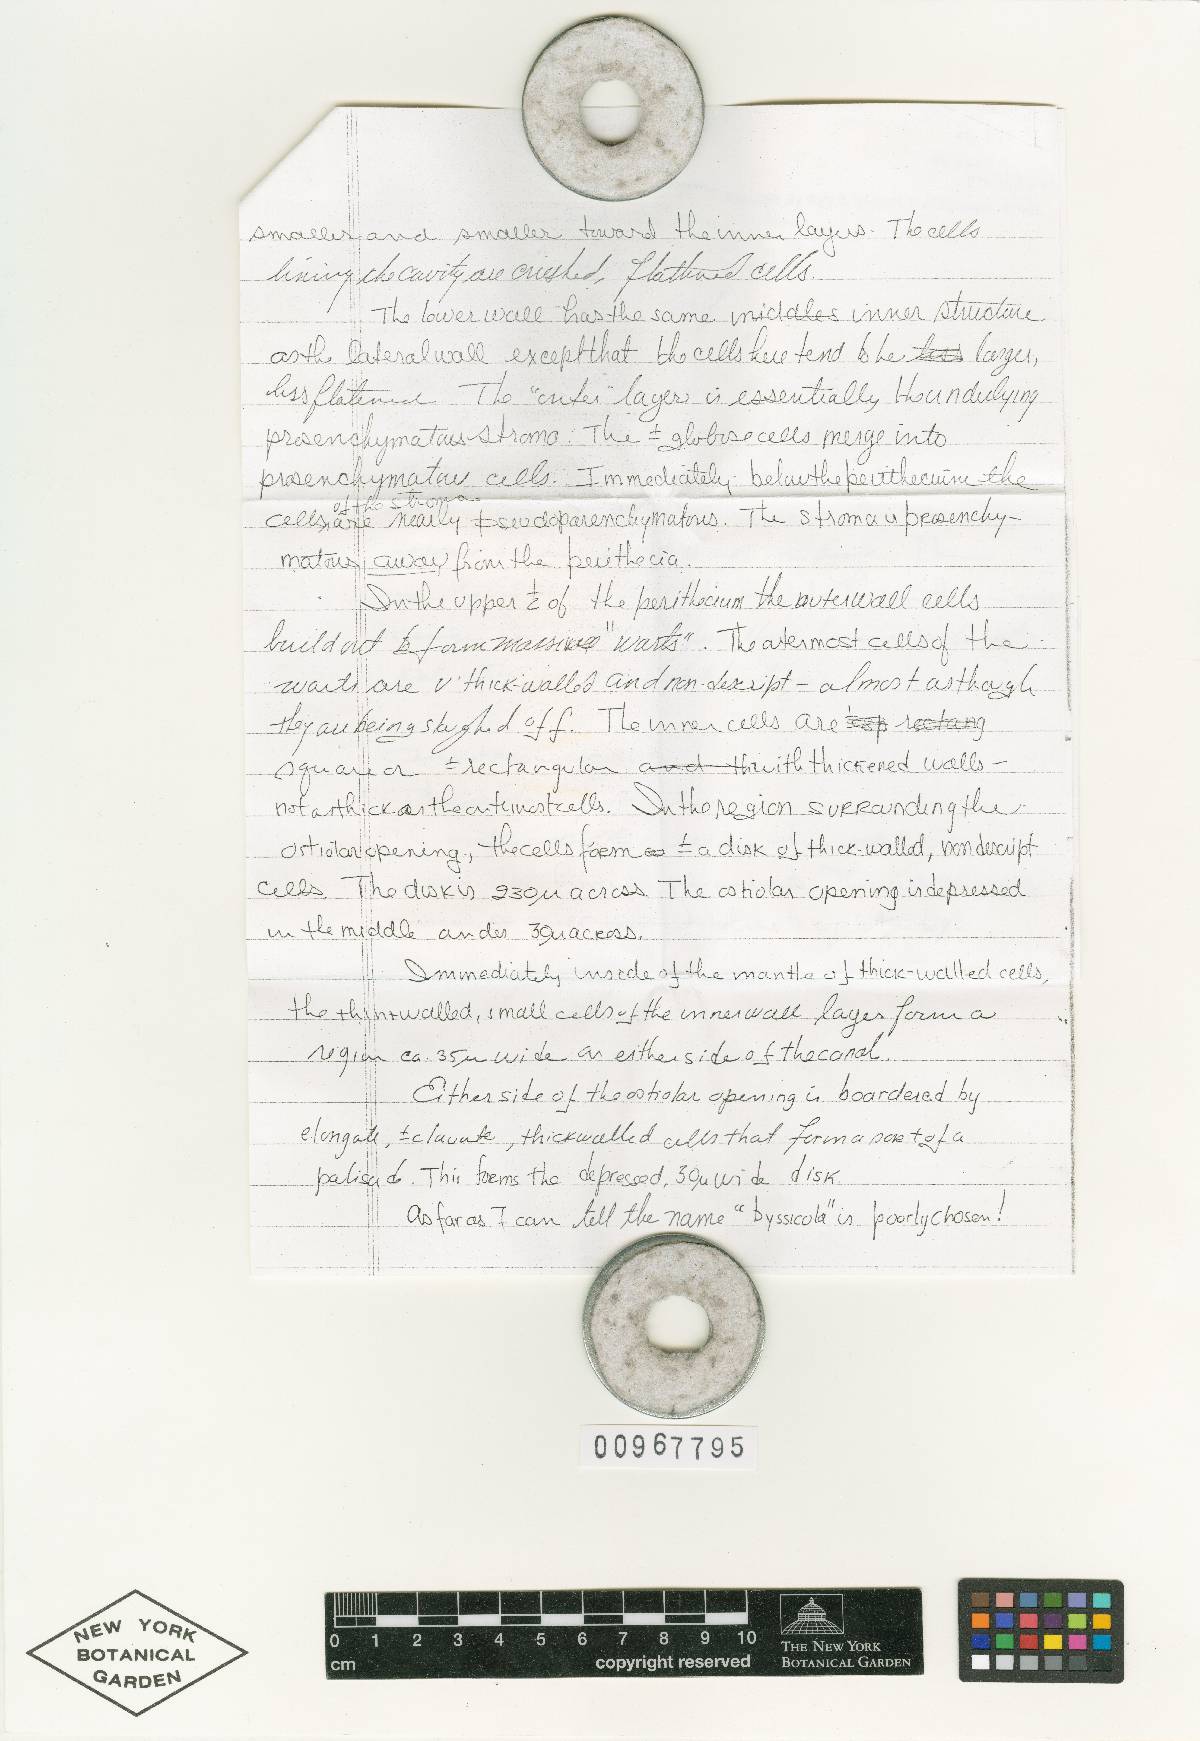 smaller and smaller toward the inner layers. The cells
lining the cavity are crushed, flattened cells.
The lower wall has the same middles inner structure
as the lateral wall except that the cells here tend to be larger,
less flattened. The "outer" layer is essentially the underlying
prosenchymatous stroma. The ± globose cells merge into
prosenchymatous cells. Immediately below the perithecium the
of the stroma
cells are nearly pseudoparenchymatous. The stroma is prosenchy-
matous away from the perithecia.
In the upper ½ of the perithecium the outer wall cells
build out to form massive "warts". The outermost cells of the
warts are v. thick-walled and non-descript - almost as though
they are being sloughed off. The inner cells are rectang
square or ± rectangular and th with thickened walls -
not as thick as the outermost cells. In the region surrounding the
ostiolar opening, the cells form ± a disk of thick-walled, nondescript
cells. The disk is 230µ across. The ostiolar opening is depressed
in the middle and is 30µ across.
Immediately inside of the mantle of thick-walled cells,
the thin-walled, small cells of the inner wall layer form a
region ca. 35µ wide on either side of the canal.
Either side of the ostiolar opening is boardered by
elongate, ± clavate, thick walled cells that form a sort of a
palisade. This forms the depressed, 30µ wide disk.
As far as I can tell the name "byssicola" is poorly chosen!
00967795
NEW YORK
BOTANICAL
GARDEN
0 1 2 3 4 5 6 7 8 9 10
cm
copyright reserved
THE NEW YORK
BOTANICAL GARDEN